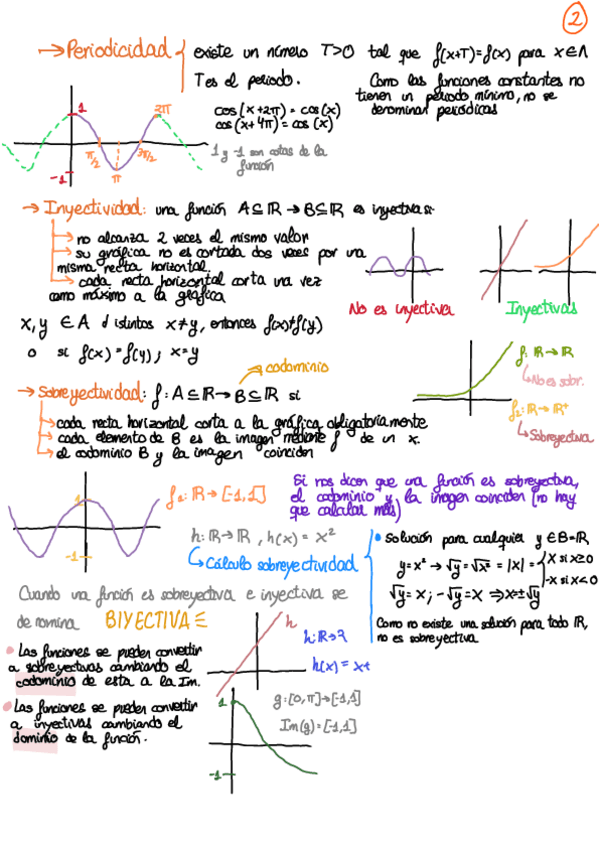 2
→ Periodicidad
existe un número T>0 tal que f(x+T)=f(x) para x∈A
T es el periodo.
Como las funciones constantes no
tienen un periodo mínimo, no se
denominan periódicas
cos(x+2π)=cos(x)
cos(x+4π)=cos(x)
1 y -1 son cotas de la
función
1
2π
π/2
3π/2
π
-1
→ Inyectividad: una función A⊆ℝ→B⊆ℝ es inyectiva si:
→ no alcanza 2 veces el mismo valor
→ su gráfica no es cortada dos veces por una
misma recta horizontal.
→ cada recta horizontal corta una vez
como máximo a la gráfica
No es inyectiva
Inyectivas
x,y ∈ A distintos x≠y, entonces f(x)≠f(y)
o si f(x)=f(y); x=y
→ codominio
→ Sobreyectividad: f: A⊆ℝ→B⊆ℝ si
f: ℝ→ℝ
↳ No es sobr.
f₂: ℝ→ℝ⁺
↳ Sobreyectiva
→ cada recta horizontal corta a la gráfica obligatoriamente
→ cada elemento de B es la imagen mediante f de un x.
→ el codominio B y la imagen coinciden
1
-1
f₂: ℝ→[-1,1]
Si nos dicen que una función es sobreyectiva,
el codominio y la imagen coinciden (no hay
que calcular más)
h: ℝ→ℝ, h(x) = x²
↳ Cálculo sobreyectividad
• Solución para cualquier y∈B=ℝ
y=x² → √y = √x² = |x| = { x si x≥0
-x si x<0
√y = x; -√y = x ⇒ x=±√y
Como no existe una solución para todo ℝ,
no es sobreyectiva
Cuando una función es sobreyectiva e inyectiva se
denomina BIYECTIVA
h
h: ℝ→?
h(x) = x+
• Las funciones se pueden convertir
a sobreyectivas cambiando el
codominio de esta a la Im.
• Las funciones se pueden convertir
a inyectivas cambiando el
dominio de la función.
1
-1
g: [0,π]→[-1,1]
Im(g)=[-1,1]